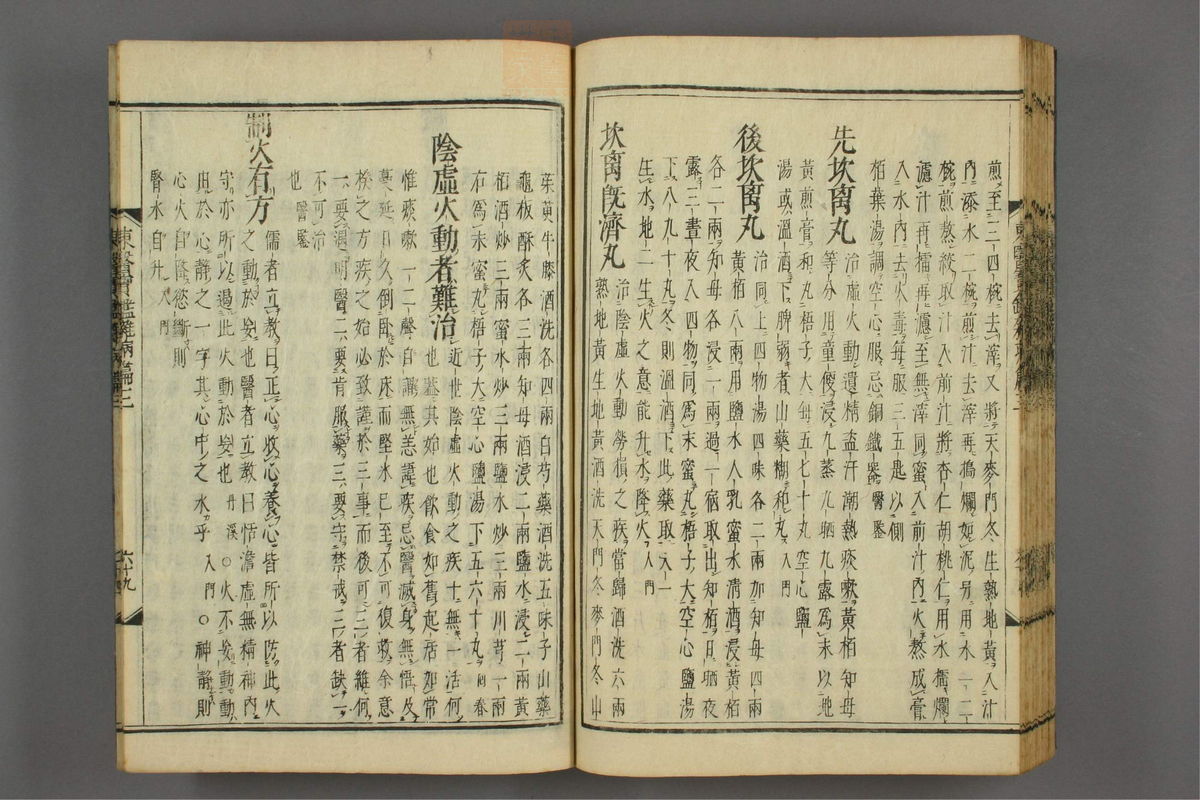 煎至三四椀去滓又將天麥門冬生熟地黃入汁
內添水二椀煎汁去滓再搗爛如泥另用水一二
椀煎熬絞取汁入前汁將杏仁胡桃仁用水擂爛
濾汁再擂再濾至無滓同蜜入前汁內火熬成膏
入水內去火毒每服三五匙以側
栢葉湯調空心服忌銅鐵器醫鑒
先坎离丸治虛火動遺精盜汗潮熱痰嗽黃栢知母
等分用童便浸九蒸九晒九露爲末以地
黃煎膏和丸梧子大每五七十丸空心鹽
湯或溫酒下脾弱者山藥糊和丸入門
後坎离丸治同上四物湯四味各二兩加知母四兩
黃栢八兩用鹽水人乳蜜水清酒浸黃栢
各二兩知母各浸一兩過一宿取出知栢瓦晒夜
露三晝夜入四物同爲末蜜丸梧子大空心鹽湯
下八九十丸冬則溫酒下此藥取天一
生水地二生火之意能升水降火入門
坎离旣濟丸治陰虛火動勞損之疾當歸酒洗六兩
熟地黃生地黃酒洗天門冬麥門冬山
茱黃牛膝酒洗各四兩白芍藥酒洗五味子山藥
龜板酥炙各三兩知母酒浸二兩鹽水浸二兩黃
栢酒炒三兩蜜水炒三兩鹽水炒三兩川芎一兩
右爲末蜜丸梧子大空心鹽湯下五六十丸回春
陰虛火動者難治近世陰虛火動之疾十無一活何
也蓋其始也飮食如舊起居如常
惟痰嗽一二聲自謂無恙諱疾忌醫滅身無悟及
蔓延日久倒臥於床而堅氷已至不可復救余意
療之方疾之始必致謹於三事而後可三者維何
一要遇明醫二要肯服藥三要守禁戒三者缺一
不可治
也醫鑒
制火有方儒者立敎曰正心收心養心皆所以防此火
之動於妄也醫者立敎曰恬澹虛無精神內
守亦所以遏此火動於妄也丹溪○火不妄動動
由於心靜之一字其心中之水乎入門○神靜則
心火自降慾斷則
腎水自升入門
東醫寶鑑雜病篇三
六十九